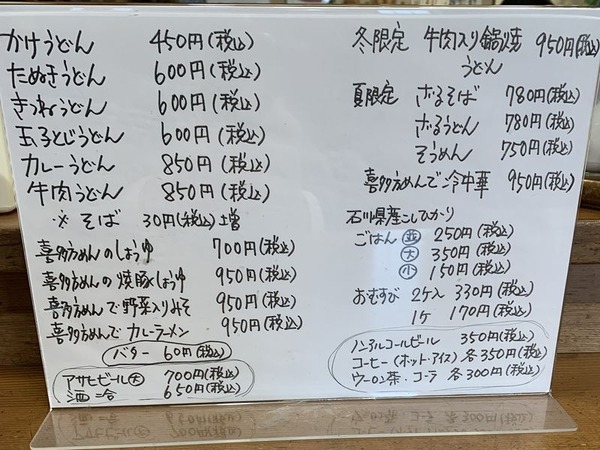 かけうどん 450円(税込)
たぬきうどん 600円(税込)
きつねうどん 600円(税込)
玉子とじうどん 600円(税込)
カレーうどん 850円(税込)
牛肉うどん 850円(税込)
※そば 30円(税込)増
喜多方めんのしょうゆ 700円(税込)
喜多方めんの焼豚しょうゆ 950円(税込)
喜多方めんで野菜入りみそ 950円(税込)
喜多方めんでカレーラーメン 950円(税込)
バター 60円(税込)
アサヒビール(大) 700円(税込)
酒一合 650円(税込)
冬限定 牛肉入り鍋焼 950円(税込)
うどん
夏限定 ざるそば 780円(税込)
ざるうどん 780円(税込)
そうめん 750円(税込)
喜多方めんで冷中華 950円(税込)
石川県産こしひかり
ごはん (並) 250円(税込)
(大) 350円(税込)
(小) 150円(税込)
おむすび 2ケ入 330円(税込)
1ケ 170円(税込)
ノンアルコールビール 350円(税込)
コーヒー(ホット・アイス) 各350円(税込)
ウーロン茶・コーラ 各300円(税込)